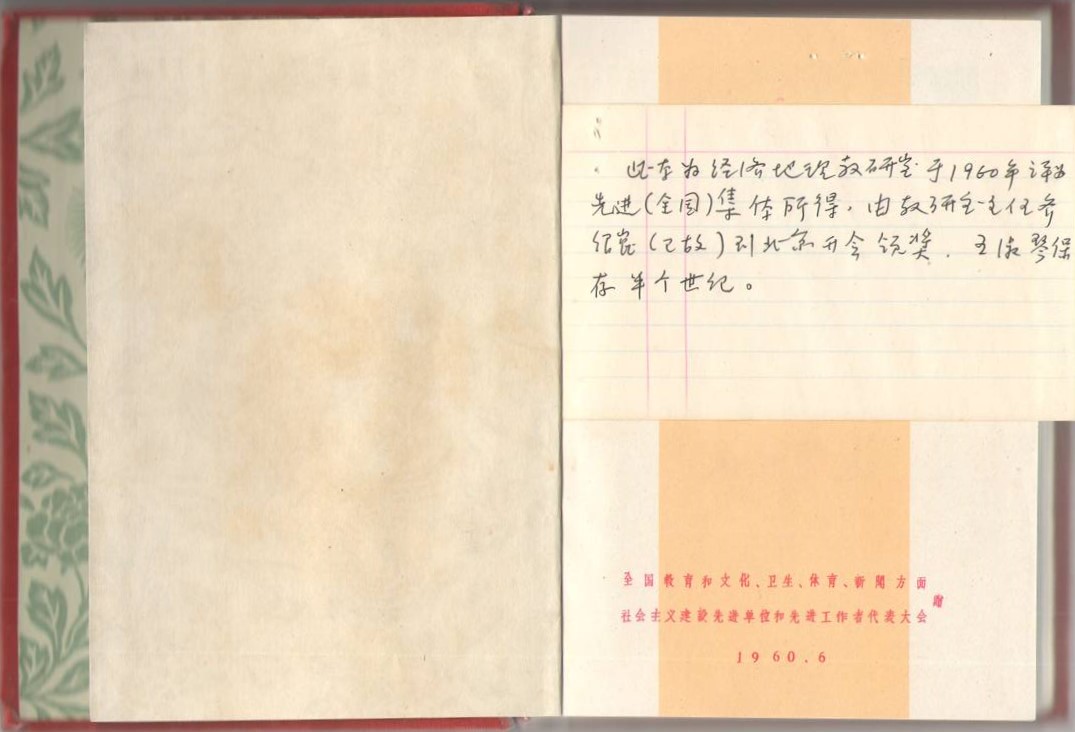 此本为经济地理教研室于1960年评为
先进(全国)集体所得,由教研室主任
(已故)到北京开会领奖.王淑琴保
存半个世纪。
全国教育和文化、卫生、体育、新聞方面
社会主义建設先进单位和先进工作者代表大会
贈
1960.6